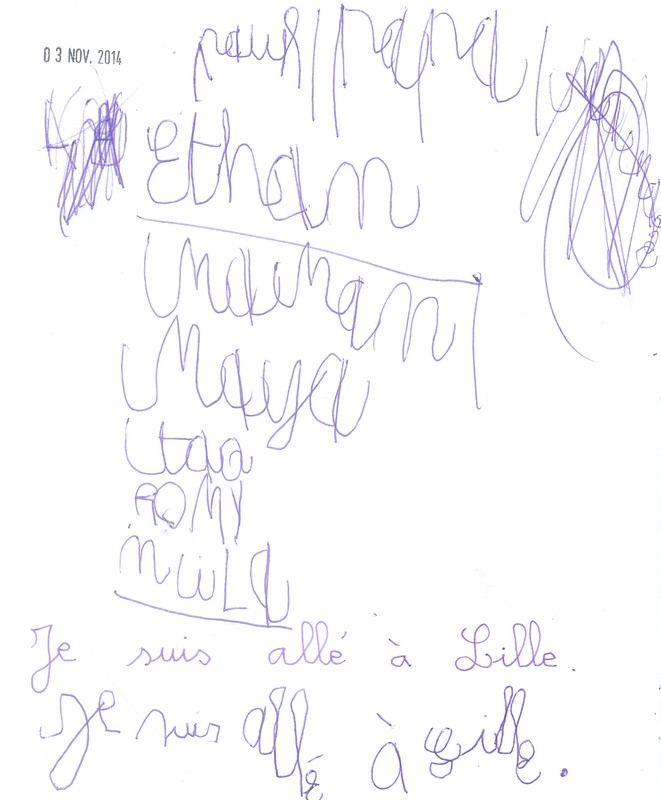 03 NOV. 2014
pour papa
Ethan
maman
Maya
ROMY
Je suis allé à Lille.
Je suis allé à Lille.